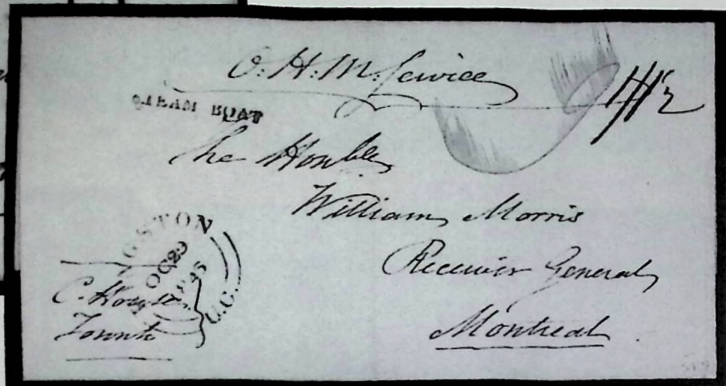 O. H. M. Service
1/1½
STEAM BOAT
The Honble
William Morris
Receiver General
Montreal
KINGSTON
OC 29
1845
U.C.
C.
Toronto